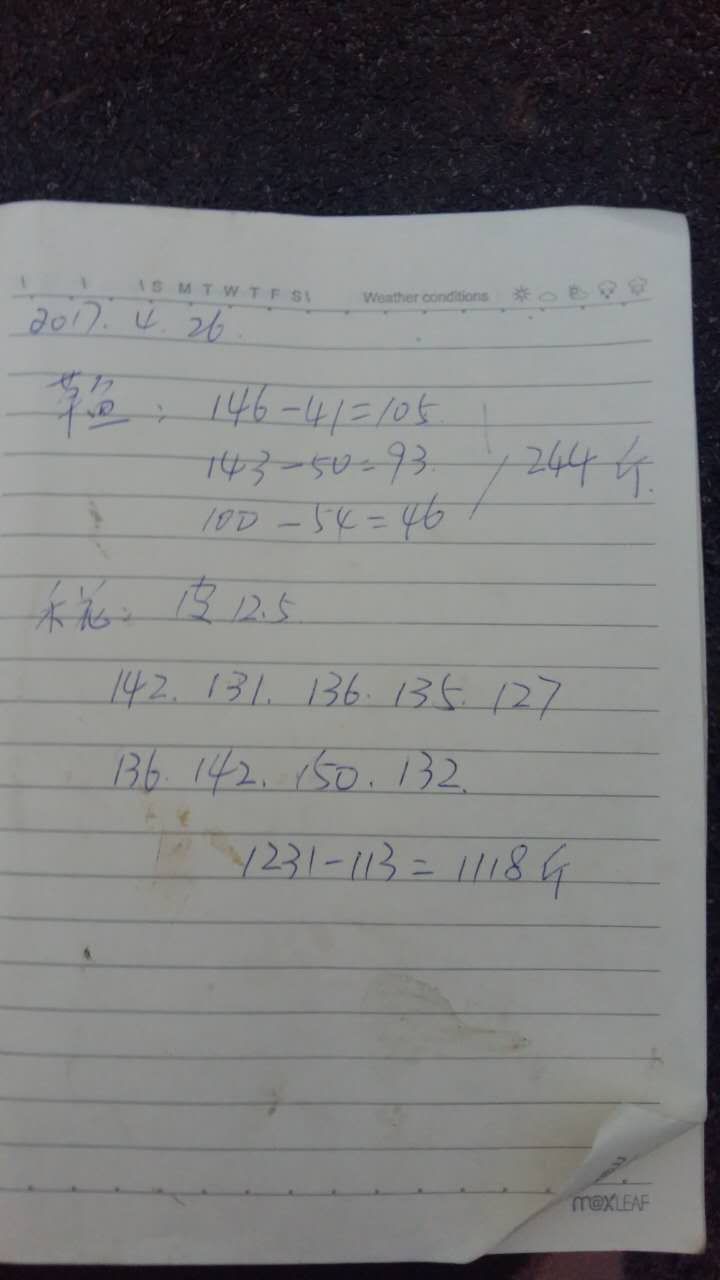 S M T W T F S Weather conditions
2017. 4. 26.
草鱼: 146-41=105
143-50=93 244斤.
100-54=46
皮12.5
142. 131. 136. 135. 127
136. 142. 150. 132.
1231-113=1118斤
m@xLEAF